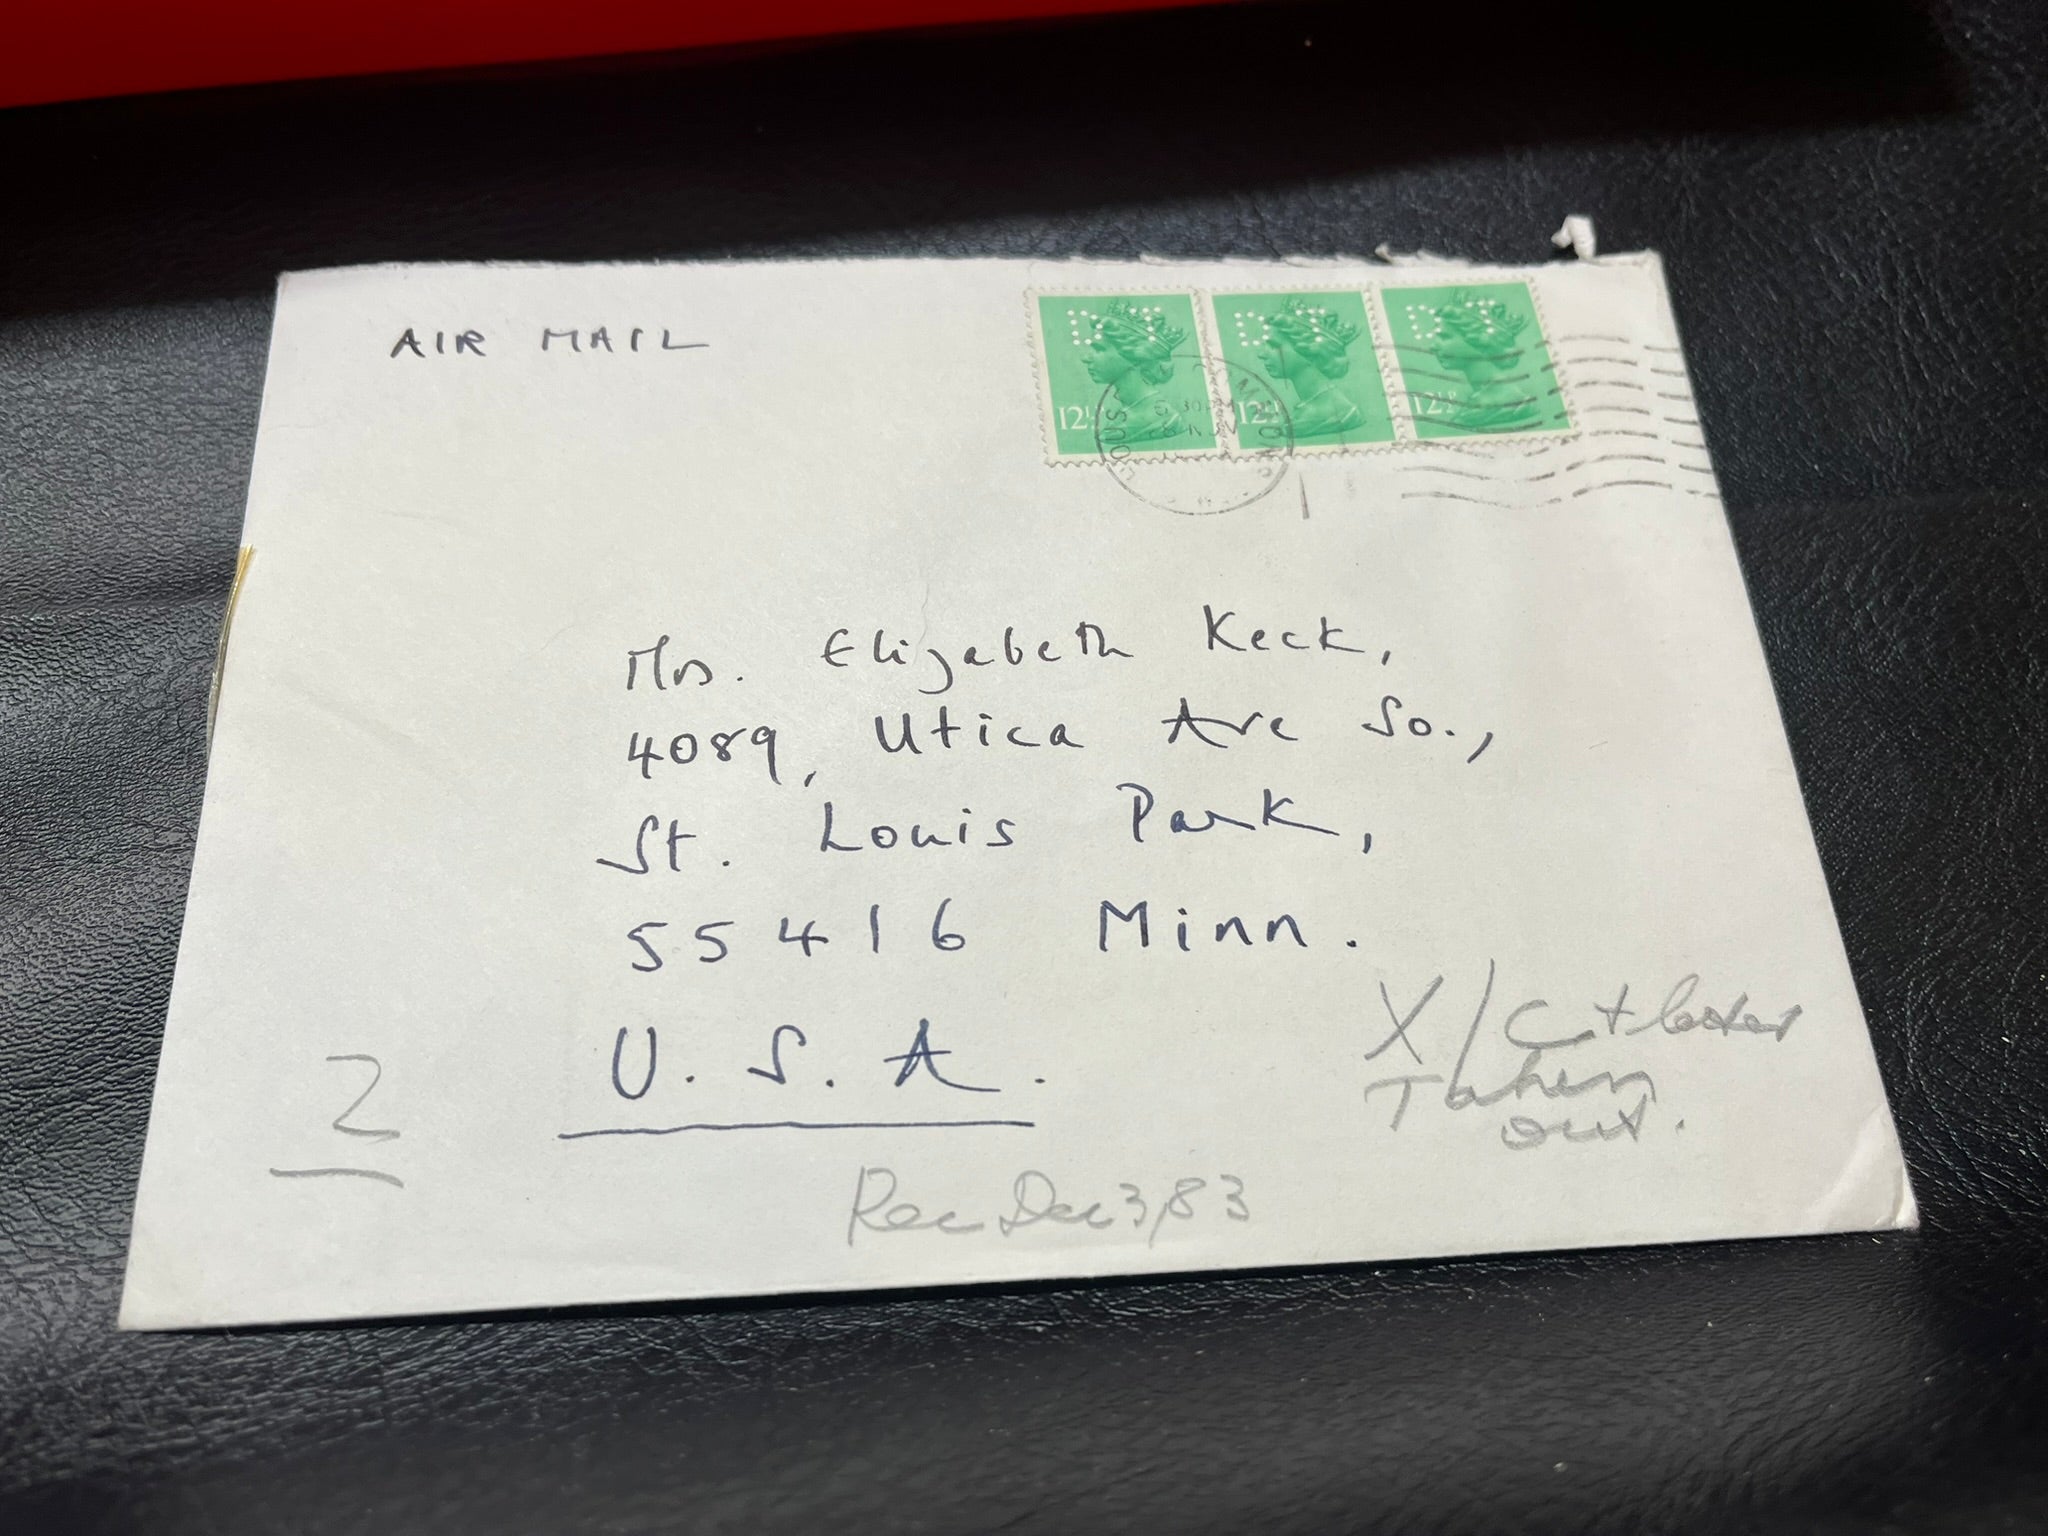 AIR MAIL
12½P 12½P 12½P
Mrs. Elizabeth Keck,
4089, Utica Ave So.,
St. Louis Park,
55416 Minn.
U.S.A.
X/C + letter
Taken
out.
2
Rec Dec 3, 83